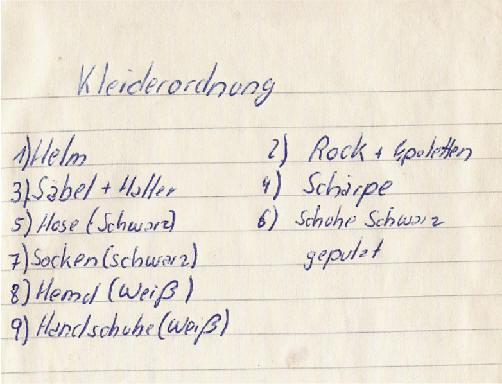 Kleiderordnung
1) Helm 2) Rock + Epaletten
3) Säbel + Halter 4) Schärpe
5) Hose (Schwarz) 6) Schuhe Schwarz
7) Socken (schwarz) geputzt
8) Hemd (weiß)
9) Handschuhe (weiß)